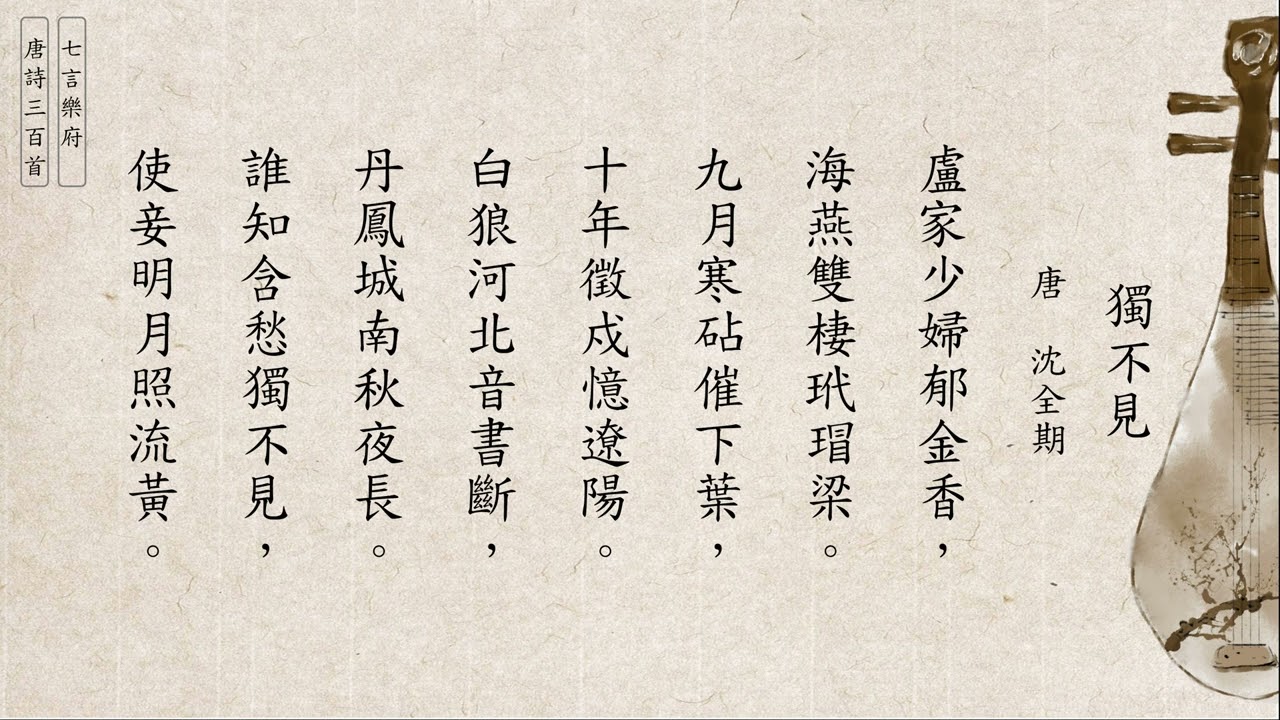 獨不見
唐 沈全期
盧家少婦郁金香，
海燕雙棲玳瑁梁。
九月寒砧催下葉，
十年徵戍憶遼陽。
白狼河北音書斷，
丹鳳城南秋夜長。
誰知含愁獨不見，
使妾明月照流黃。
七言樂府
唐詩三百首